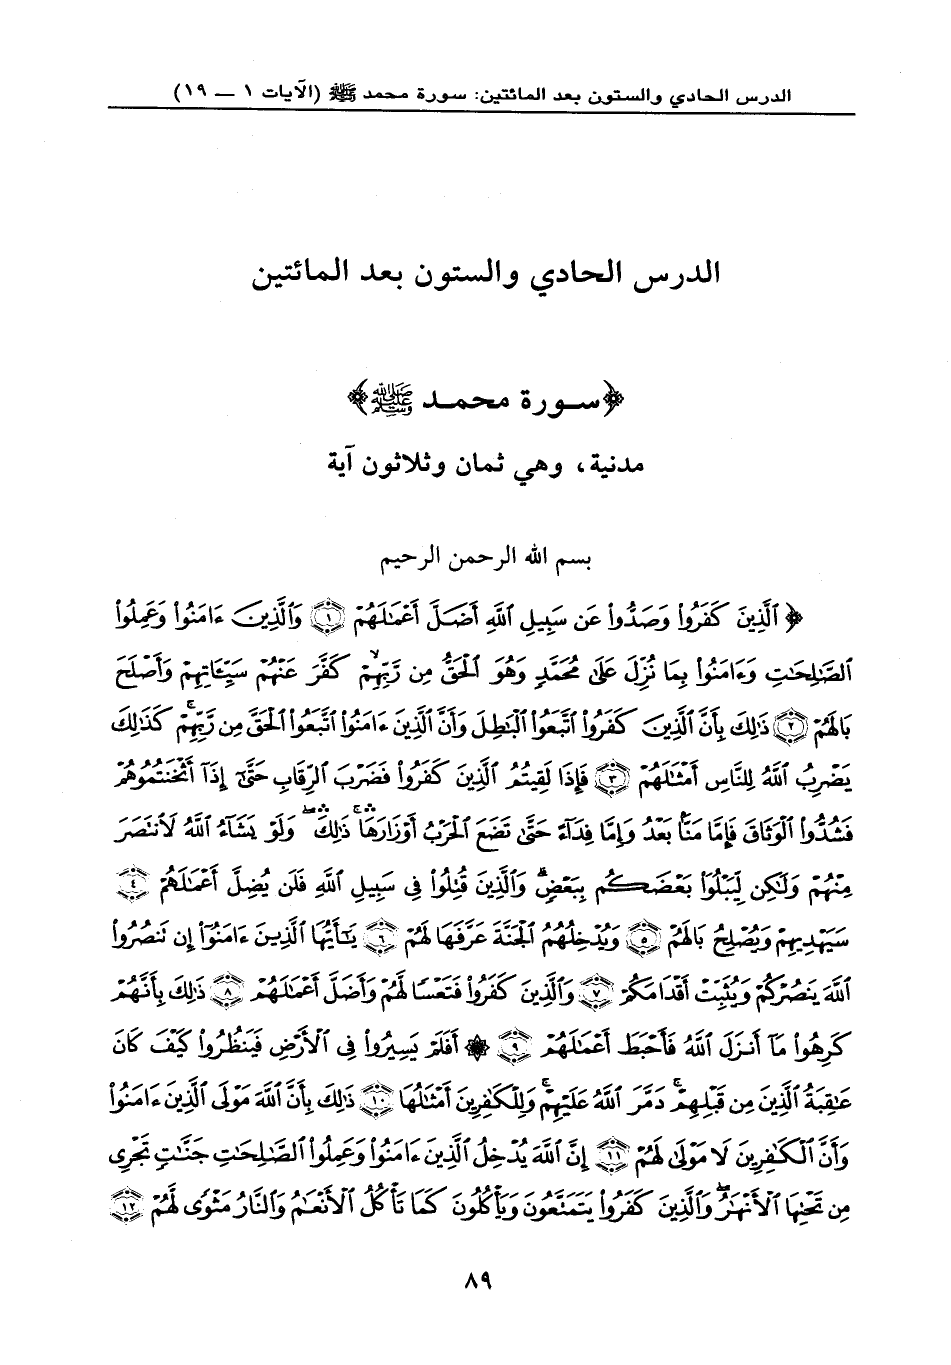 الدرس الحادي والستون بعد المائتين: سورة محمد ﷺ (الآيات ١ — ١٩)
الدرس الحادي والستون بعد المائتين
﴿سورة محمد ﷺ﴾
مدنية، وهي ثمان وثلاثون آية
بسم الله الرحمن الرحيم
﴿ ٱلَّذِينَ كَفَرُوا۟ وَصَدُّوا۟ عَن سَبِيلِ ٱللَّهِ أَضَلَّ أَعْمَـٰلَهُمْ ١ وَٱلَّذِينَ ءَامَنُوا۟ وَعَمِلُوا۟
ٱلصَّـٰلِحَـٰتِ وَءَامَنُوا۟ بِمَا نُزِّلَ عَلَىٰ مُحَمَّدٍ وَهُوَ ٱلْحَقُّ مِن رَّبِّهِمْ ۙ كَفَّرَ عَنْهُمْ سَيِّـَٔاتِهِمْ وَأَصْلَحَ
بَالَهُمْ ٢ ذَٰلِكَ بِأَنَّ ٱلَّذِينَ كَفَرُوا۟ ٱتَّبَعُوا۟ ٱلْبَـٰطِلَ وَأَنَّ ٱلَّذِينَ ءَامَنُوا۟ ٱتَّبَعُوا۟ ٱلْحَقَّ مِن رَّبِّهِمْ ۚ كَذَٰلِكَ
يَضْرِبُ ٱللَّهُ لِلنَّاسِ أَمْثَـٰلَهُمْ ٣ فَإِذَا لَقِيتُمُ ٱلَّذِينَ كَفَرُوا۟ فَضَرْبَ ٱلرِّقَابِ حَتَّىٰٓ إِذَآ أَثْخَنتُمُوهُمْ
فَشُدُّوا۟ ٱلْوَثَاقَ فَإِمَّا مَنًّۢا بَعْدُ وَإِمَّا فِدَآءً حَتَّىٰ تَضَعَ ٱلْحَرْبُ أَوْزَارَهَا ۚ ۛ ذَٰلِكَ ۖ ۛ وَلَوْ يَشَآءُ ٱللَّهُ لَٱنتَصَرَ
مِنْهُمْ وَلَـٰكِن لِّيَبْلُوَا۟ بَعْضَكُم بِبَعْضٍ ۗ وَٱلَّذِينَ قُتِلُوا۟ فِى سَبِيلِ ٱللَّهِ فَلَن يُضِلَّ أَعْمَـٰلَهُمْ ٤
سَيَهْدِيهِمْ وَيُصْلِحُ بَالَهُمْ ٥ وَيُدْخِلُهُمُ ٱلْجَنَّةَ عَرَّفَهَا لَهُمْ ٦ يَـٰٓأَيُّهَا ٱلَّذِينَ ءَامَنُوٓا۟ إِن تَنصُرُوا۟
ٱللَّهَ يَنصُرْكُمْ وَيُثَبِّتْ أَقْدَامَكُمْ ٧ وَٱلَّذِينَ كَفَرُوا۟ فَتَعْسًا لَّهُمْ وَأَضَلَّ أَعْمَـٰلَهُمْ ٨ ذَٰلِكَ بِأَنَّهُمْ
كَرِهُوا۟ مَآ أَنزَلَ ٱللَّهُ فَأَحْبَطَ أَعْمَـٰلَهُمْ ٩ ۞ أَفَلَمْ يَسِيرُوا۟ فِى ٱلْأَرْضِ فَيَنظُرُوا۟ كَيْفَ كَانَ
عَـٰقِبَةُ ٱلَّذِينَ مِن قَبْلِهِمْ ۚ دَمَّرَ ٱللَّهُ عَلَيْهِمْ ۖ وَلِلْكَـٰفِرِينَ أَمْثَـٰلُهَا ١٠ ذَٰلِكَ بِأَنَّ ٱللَّهَ مَوْلَى ٱلَّذِينَ ءَامَنُوا۟
وَأَنَّ ٱلْكَـٰفِرِينَ لَا مَوْلَىٰ لَهُمْ ١١ إِنَّ ٱللَّهَ يُدْخِلُ ٱلَّذِينَ ءَامَنُوا۟ وَعَمِلُوا۟ ٱلصَّـٰلِحَـٰتِ جَنَّـٰتٍ تَجْرِى
مِن تَحْتِهَا ٱلْأَنْهَـٰرُ ۖ وَٱلَّذِينَ كَفَرُوا۟ يَتَمَتَّعُونَ وَيَأْكُلُونَ كَمَا تَأْكُلُ ٱلْأَنْعَـٰمُ وَٱلنَّارُ مَثْوًى لَّهُمْ ١٢
٨٩